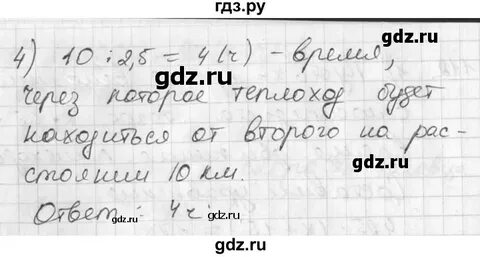 гдз.ру
4) 10 : 2,5 = 4 (ч) - время,
gdz.ru
через которое теплоход будет
gdz.ru gdz.ru
находиться от второго на рас-
стоянии 10 км.
gdz.ru
Ответ: 4 ч.
gdz.ru gdz.ru
gdz.ru